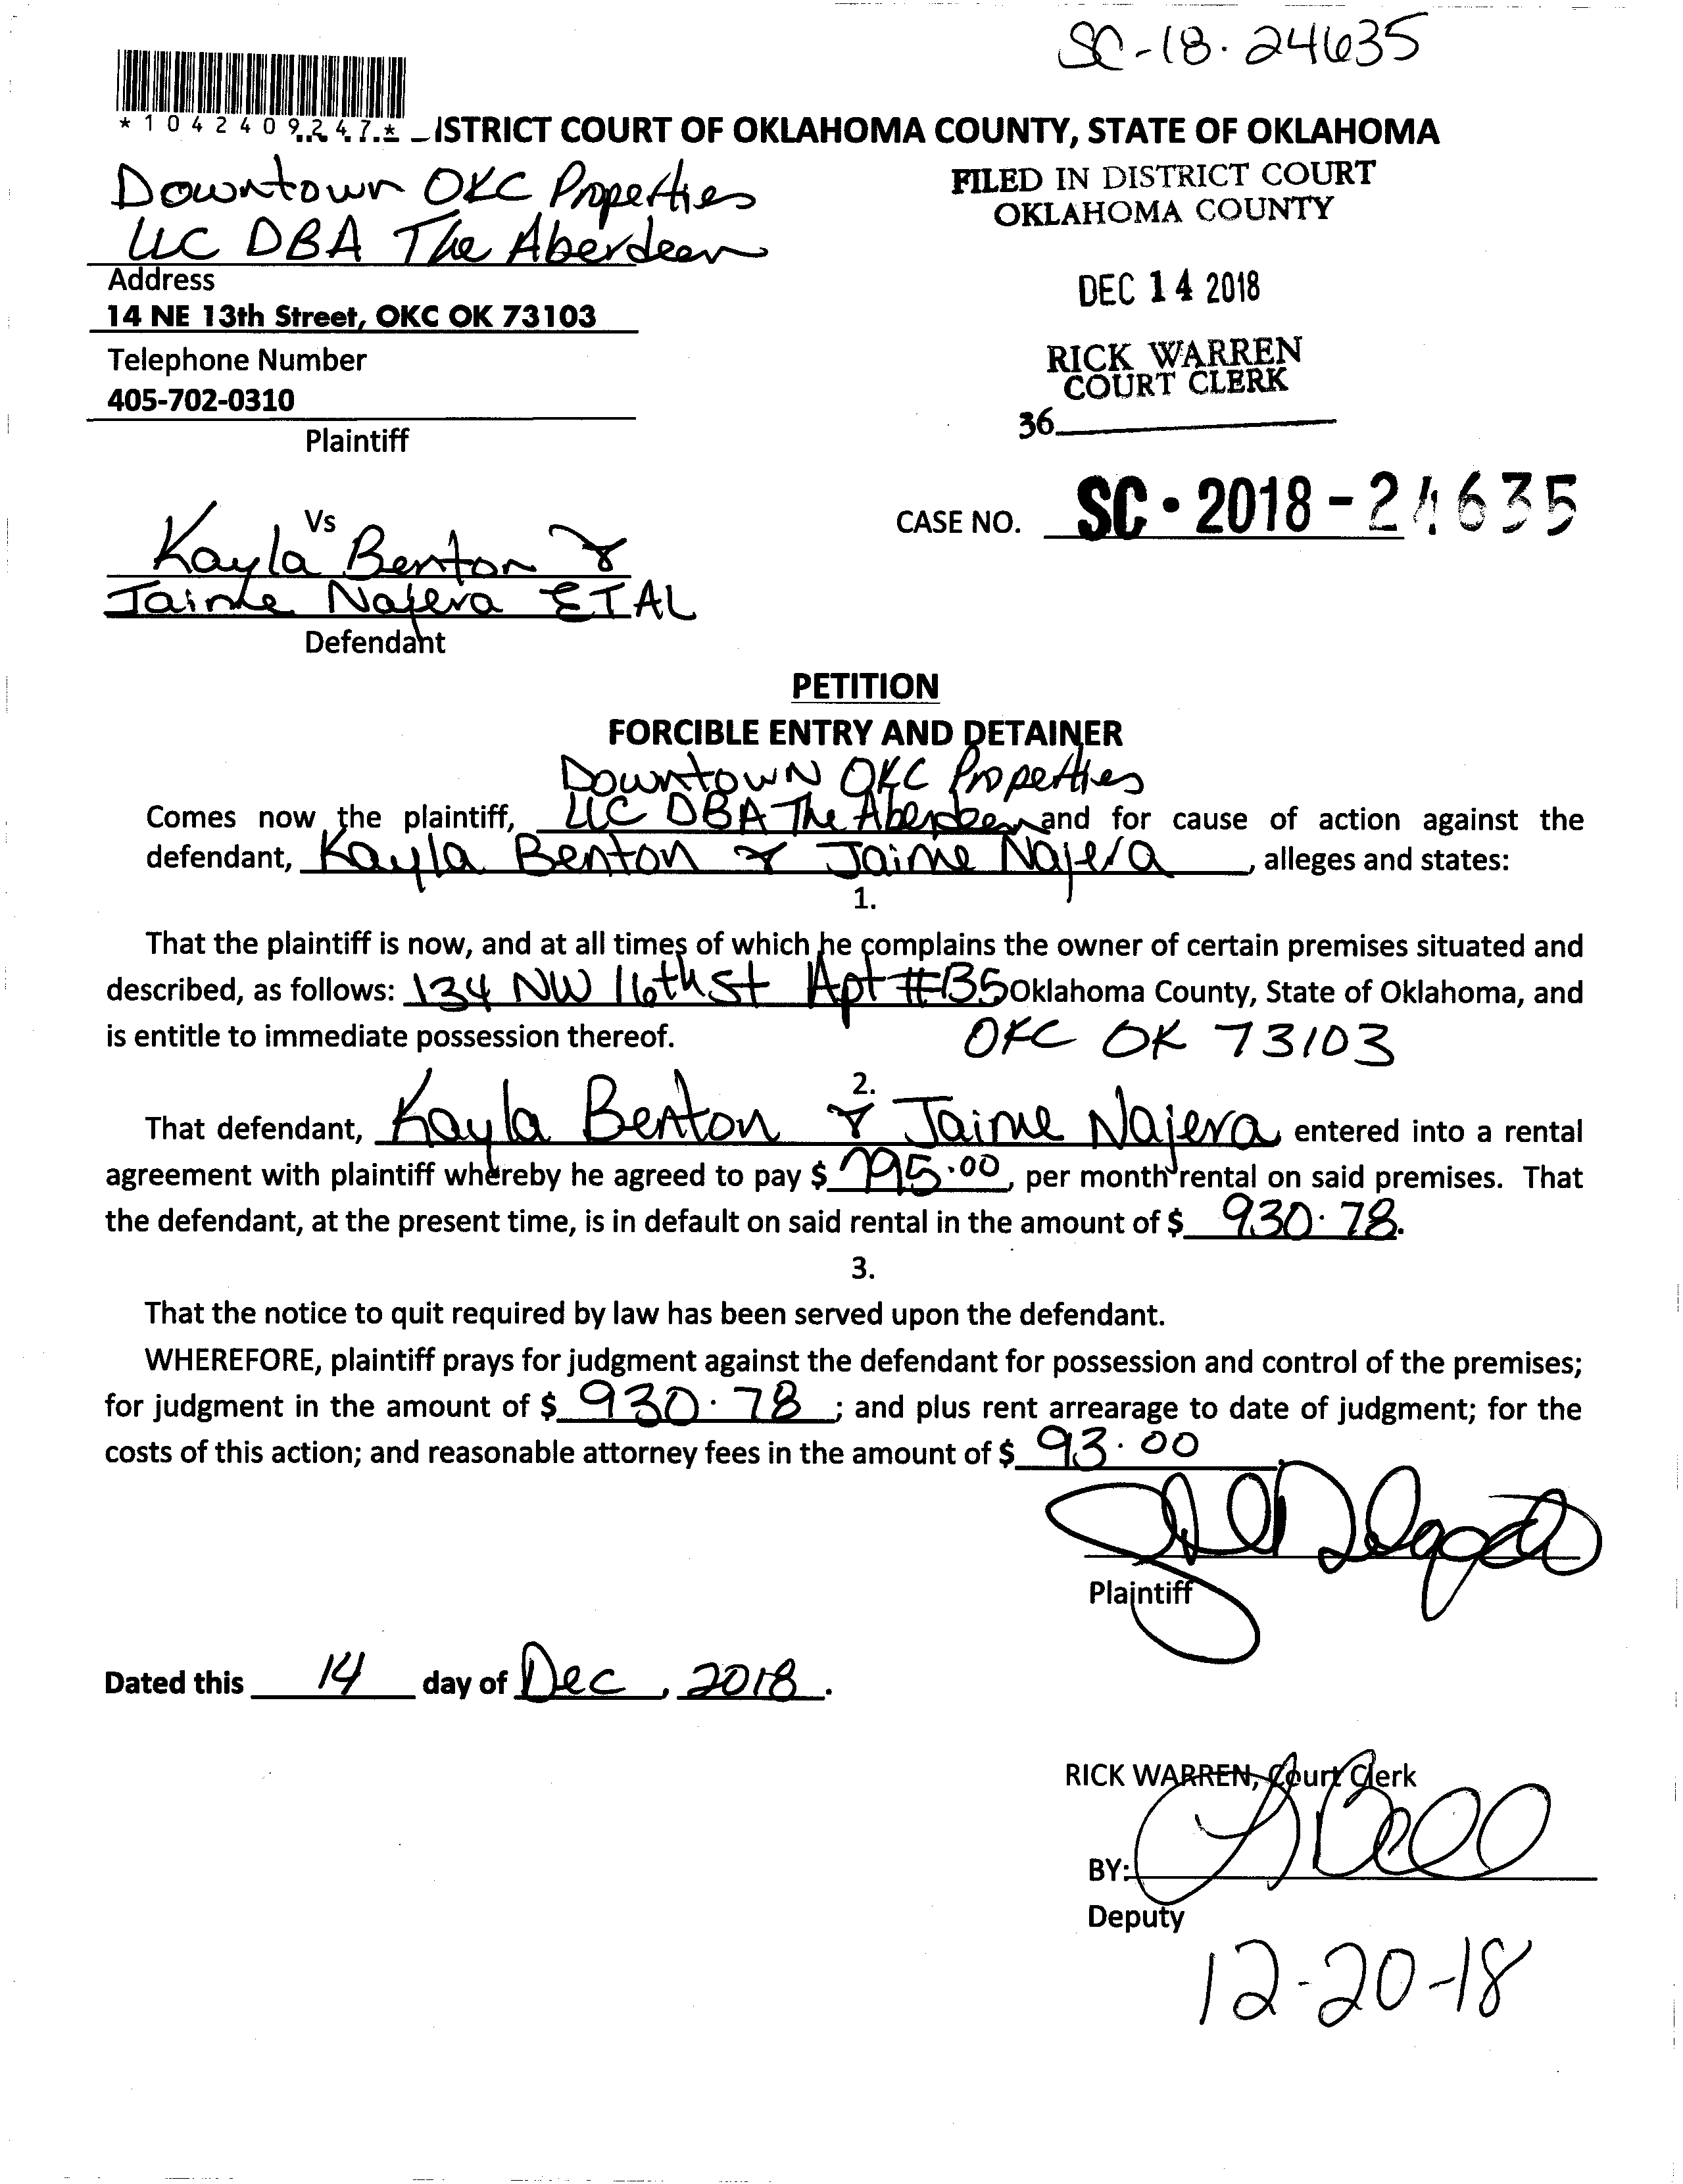 SC-18-24635
*1042409247*
ISTRICT COURT OF OKLAHOMA COUNTY, STATE OF OKLAHOMA
Downtown OKC Properties
LLC DBA The Aberdeen
Address
14 NE 13th Street, OKC OK 73103
Telephone Number
405-702-0310
Plaintiff
FILED IN DISTRICT COURT
OKLAHOMA COUNTY
DEC 14 2018
RICK WARREN
COURT CLERK
36
Vs
Kayla Benton &
Jaime Najera ETAL
Defendant
CASE NO. SC-2018-24635
PETITION
FORCIBLE ENTRY AND DETAINER
Downtown OKC Properties
Comes now the plaintiff, LLC DBA The Aberdeen and for cause of action against the
defendant, Kayla Benton & Jaime Najera, alleges and states:
1.
That the plaintiff is now, and at all times of which he complains the owner of certain premises situated and
described, as follows: 134 NW 16th St Apt #B5 Oklahoma County, State of Oklahoma, and
is entitle to immediate possession thereof. OKC OK 73103
2.
That defendant, Kayla Benton & Jaime Najera entered into a rental
agreement with plaintiff whereby he agreed to pay $ 795.00, per month rental on said premises. That
the defendant, at the present time, is in default on said rental in the amount of $ 930.78.
3.
That the notice to quit required by law has been served upon the defendant.
WHEREFORE, plaintiff prays for judgment against the defendant for possession and control of the premises;
for judgment in the amount of $ 930.78; and plus rent arrearage to date of judgment; for the
costs of this action; and reasonable attorney fees in the amount of $ 93.00
Plaintiff
Dated this 14 day of Dec, 2018.
RICK WARREN, Court Clerk
BY:
Deputy
12-20-18